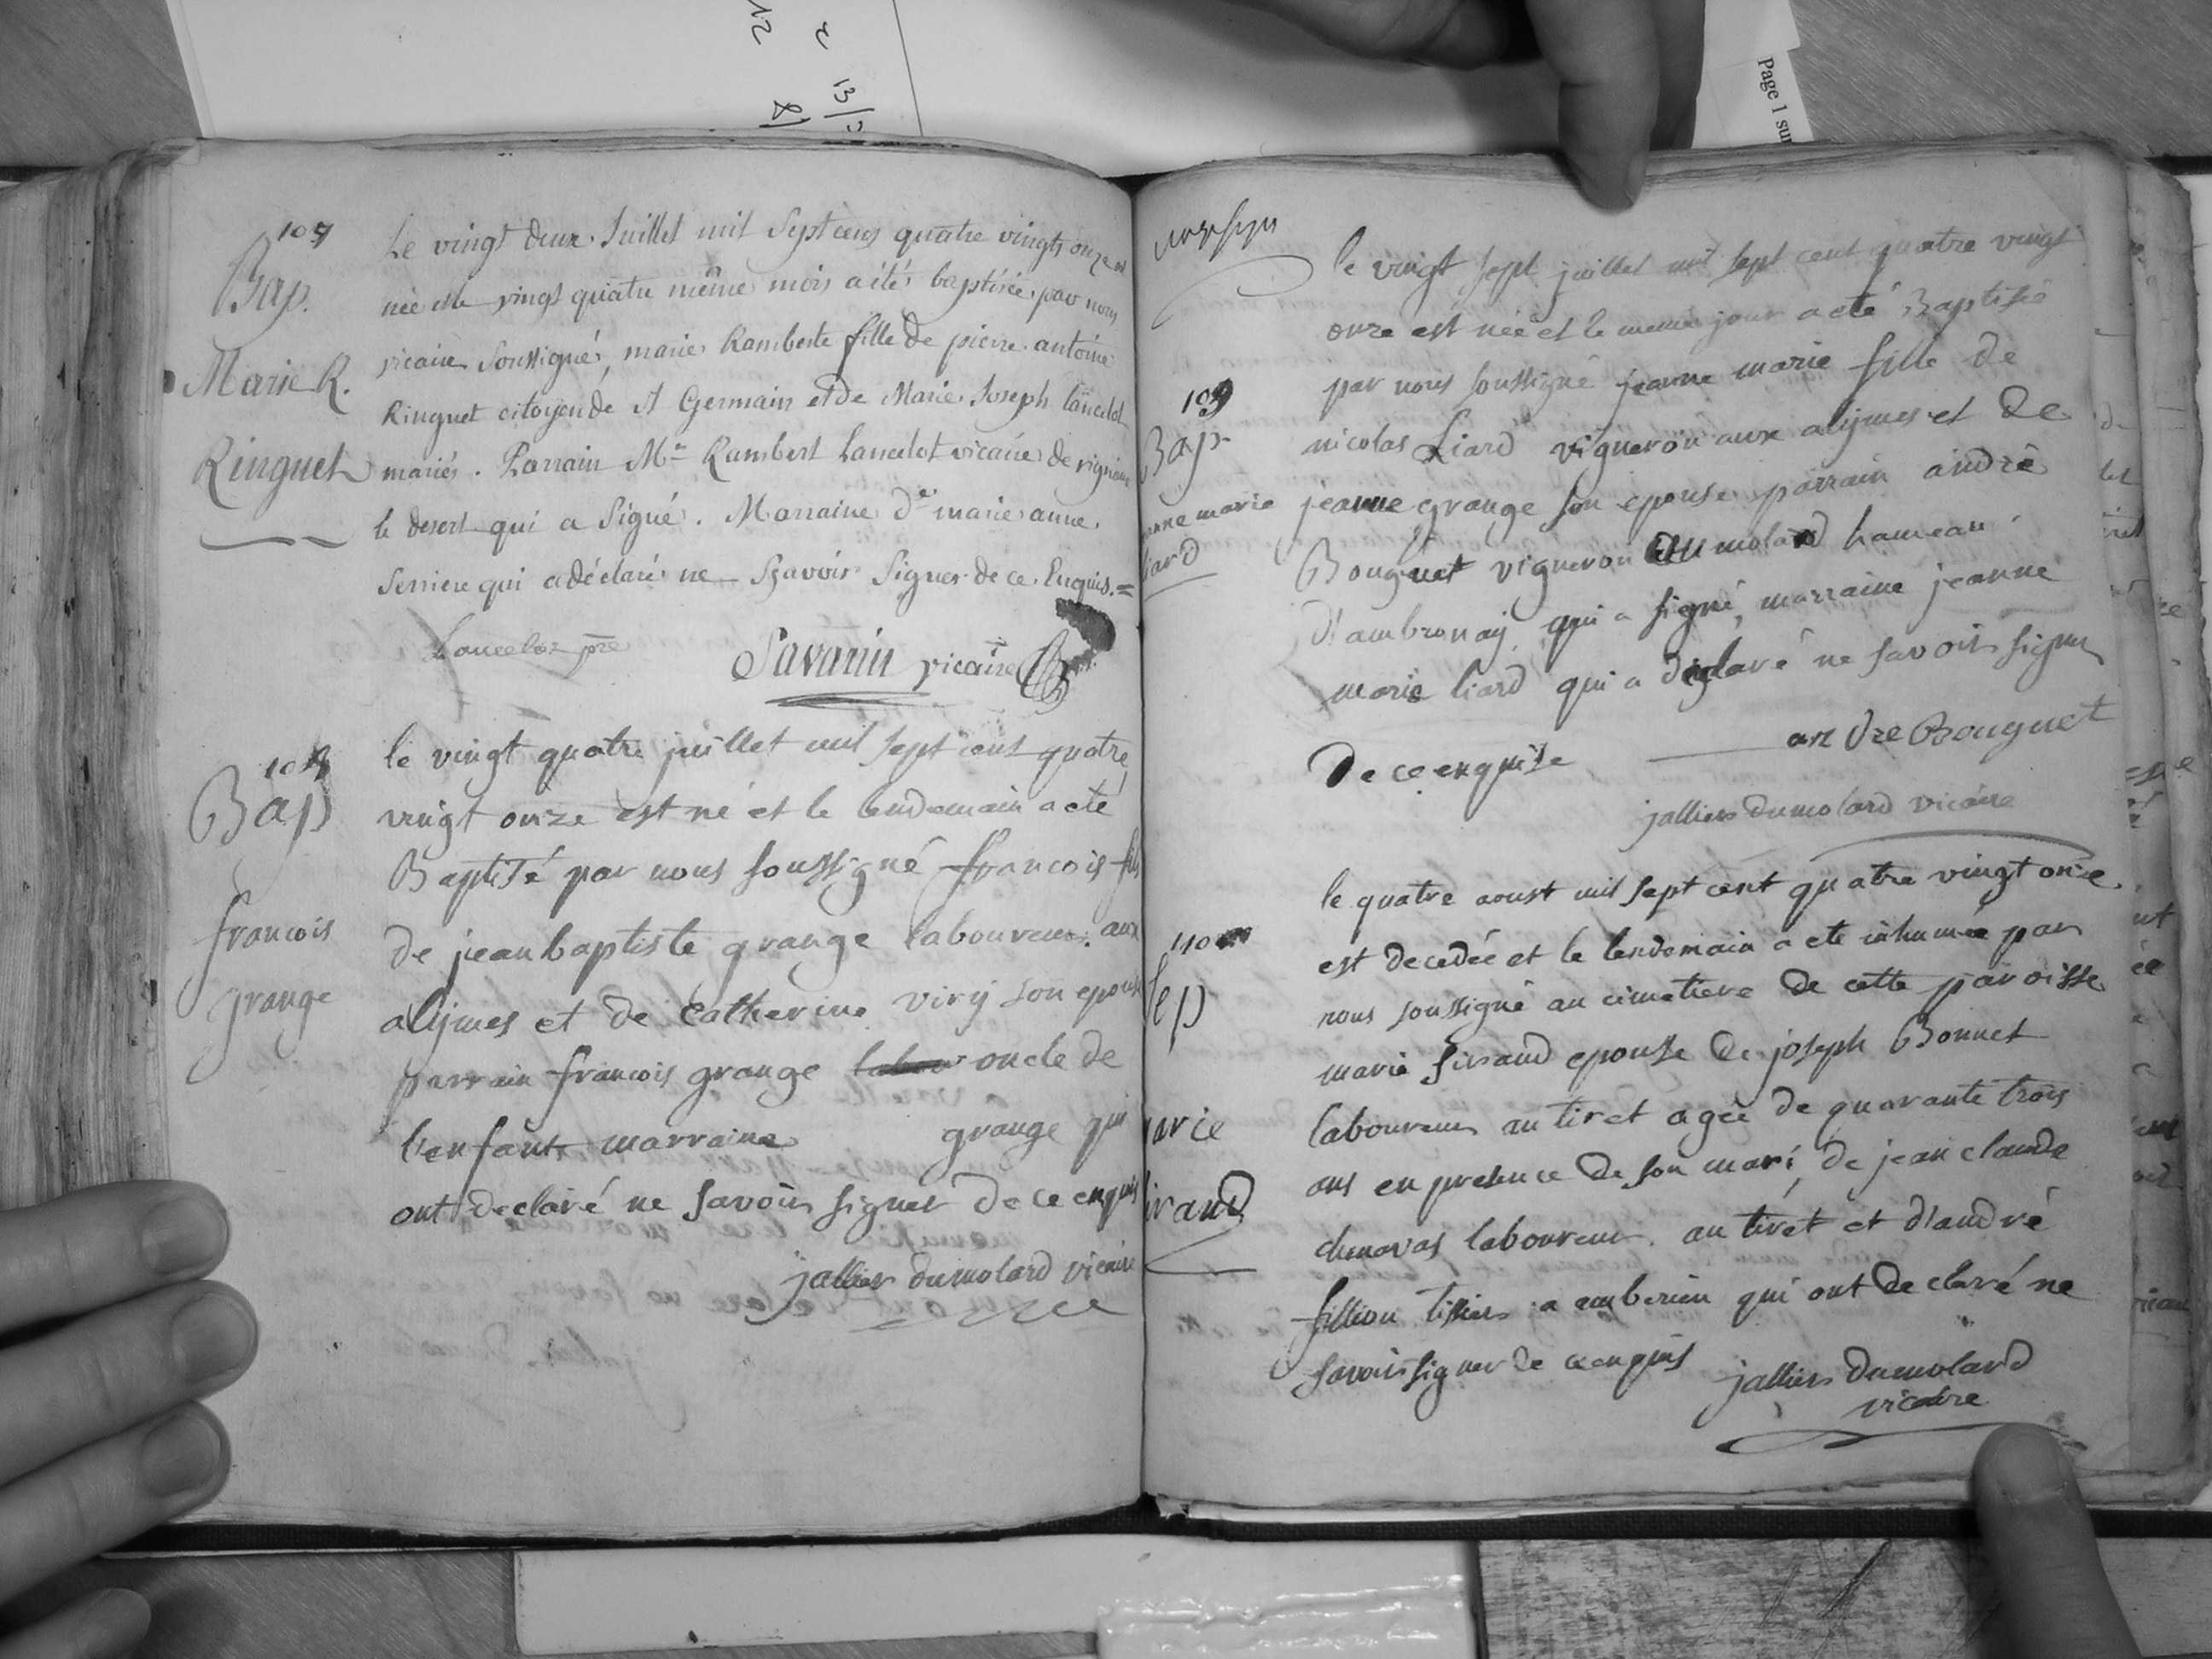 12
13/
Page 1 sur
107
Bap.
Marie R.
Ringuet
Le vingt deux Juillet mil Sept cens quatre vingts onze est
née et le vingt quatre même mois a été baptisée par nous
vicaire Soussigné, marie Ramberte fille de pierre antoine
Ringuet citoyen de St Germain et de Marie Joseph lancelot
mariés. Parrain Mre Rambert Lancelot vicaire de
le desert qui a Signé. Marraine dle marie anne
Serriere qui a déclaré ne Sçavoir Signer de ce Enquis.=
Lancelot ptre
Savarin vicaire
108
Bap
francois
grange
le vingt quatre juillet mil sept cent quatre
vingt onze est né et le lendemain a eté
Baptisé par nous soussigné francois fils
de jean baptiste grange laboureur aux
alijmes et de Catherine virij son epouse
parrain francois grange oncle de
l'enfant marraine grange qui
ont declaré ne savoir signer de ce enquis
jallier dumolard vicaire
109
Bap
anne marie
liard
le vingt sept juillet mil sept cent quatre vingt
onze est née et le meme jour a eté Baptisée
par nous soussigné jeanne marie fille de
nicolas Liard vigneron aux alijmes et de
jeanne grange son epouse parrain andré
Bouguet vigneron au molard hameau
d'ambronay qui a signé, marraine jeanne
marie liard qui a déclaré ne savoir signer
de ce enquise
andre Bouguet
jallier dumolard vicaire
110
Sep
arie
irand
le quatre aoust mil sept cent quatre vingt onze
est decedée et le lendemain a eté inhumée par
nous soussigné au cimetiere de cette paroisse
marie sirand epouse de joseph Bonnet
laboureur au tiret agée de quarante trois
ans en presence de son mari, de jean claude
chenavas laboureur au tiret et d'andré
fillion tissier a amberieu qui ont declaré ne
savoir signer de ce enquis
jallier dumolard
vicaire